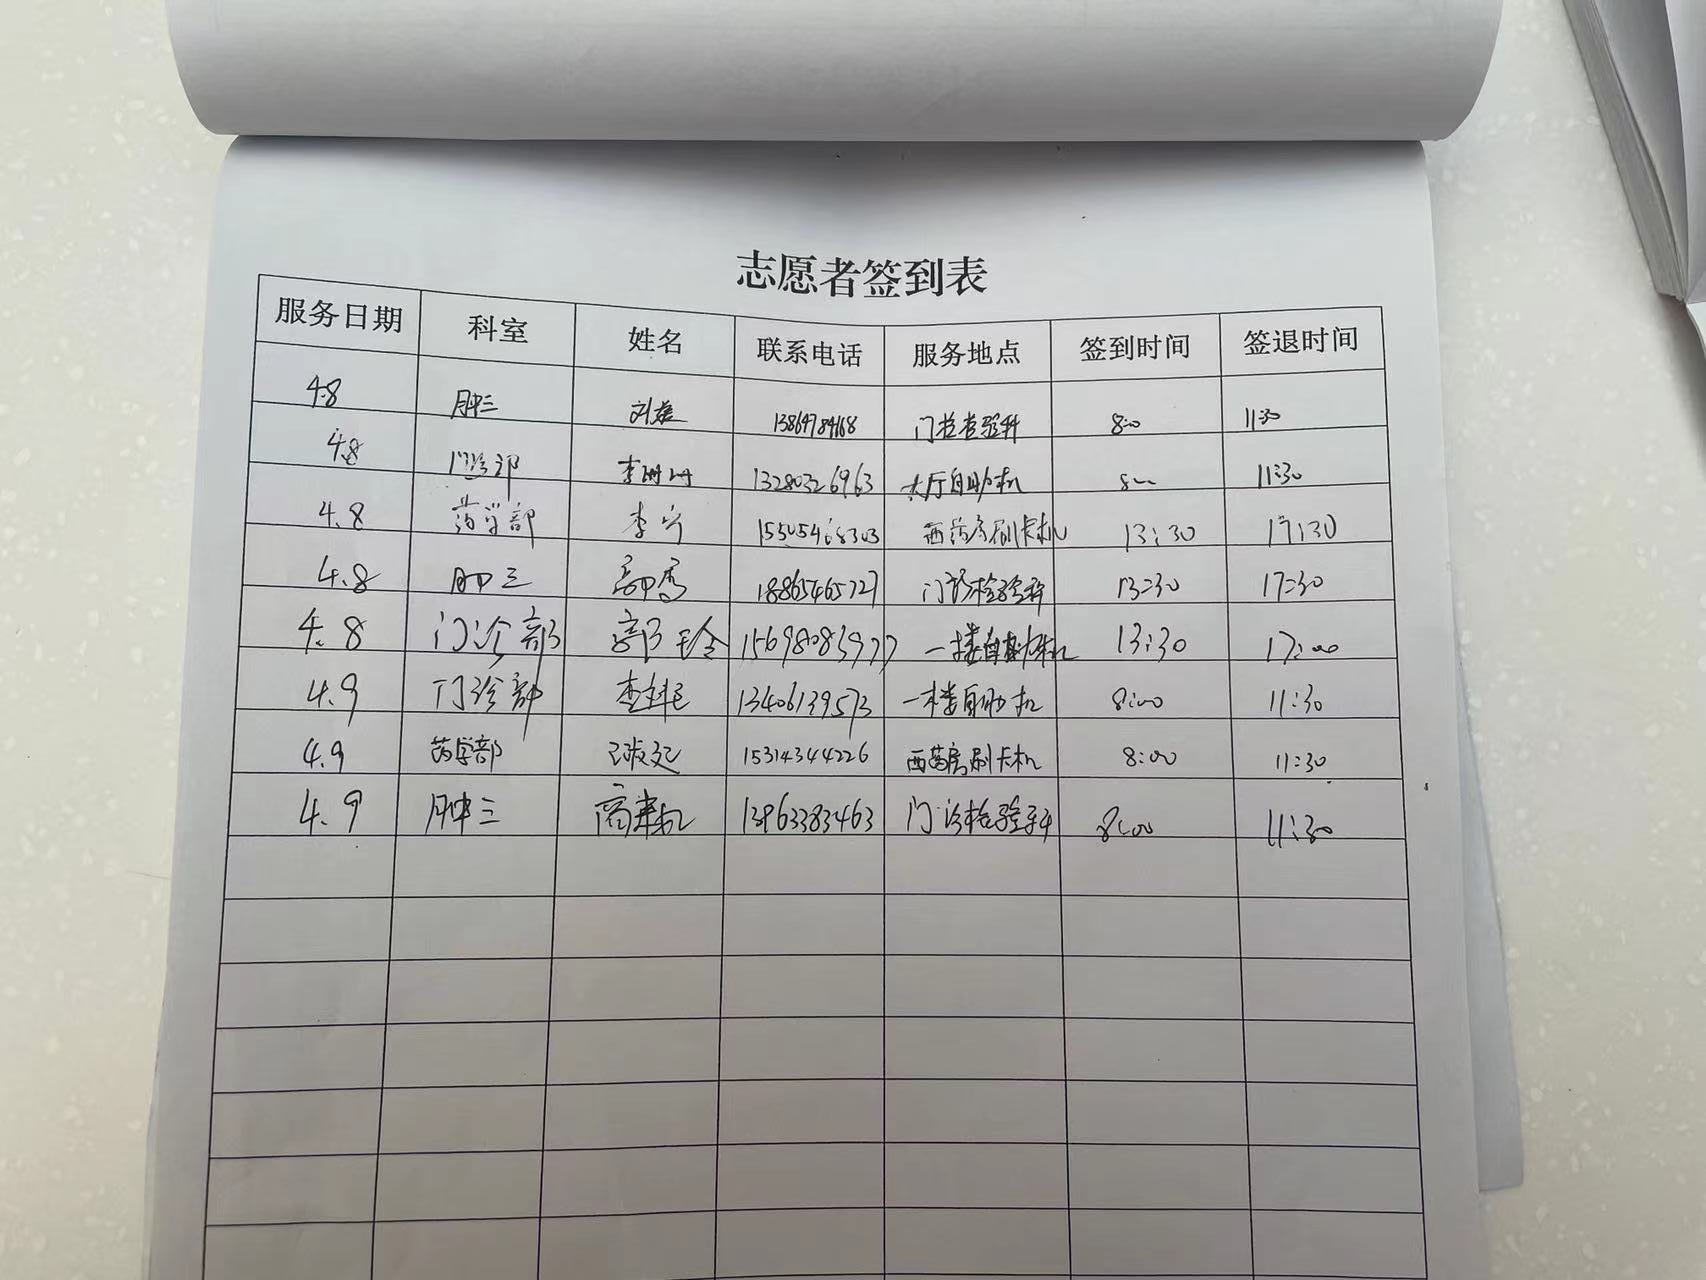 志愿者签到表
服务日期 科室 姓名 联系电话 服务地点 签到时间 签退时间
4.8 肿三 刘 门诊检验科 8:00 11:30
4.8 门诊部 李珊珊 13280326963 大厅自助机 8:00 11:30
4.8 药学部 李宁 西药房刷卡机 13:30 17:30
4.8 肿三 18865465727 门诊检验科 13:30 17:30
4.8 门诊部 15698083977 一楼自助机 13:30 17:00
4.9 门诊部 13406139573 一楼自助机 8:00 11:30
4.9 药学部 15314344226 西药房刷卡机 8:00 11:30
4.9 肿三 13963383463 门诊检验科 8:00 11:30